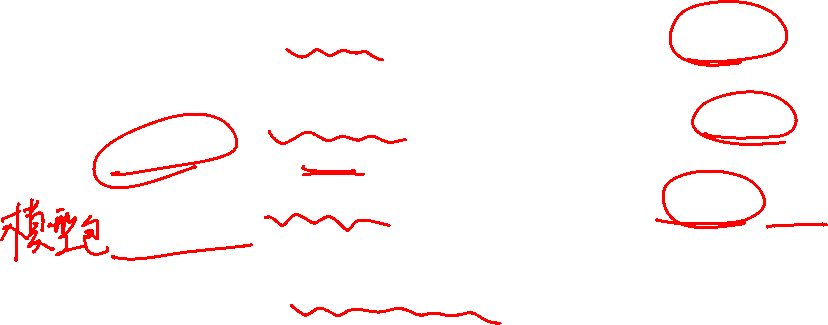 模型包